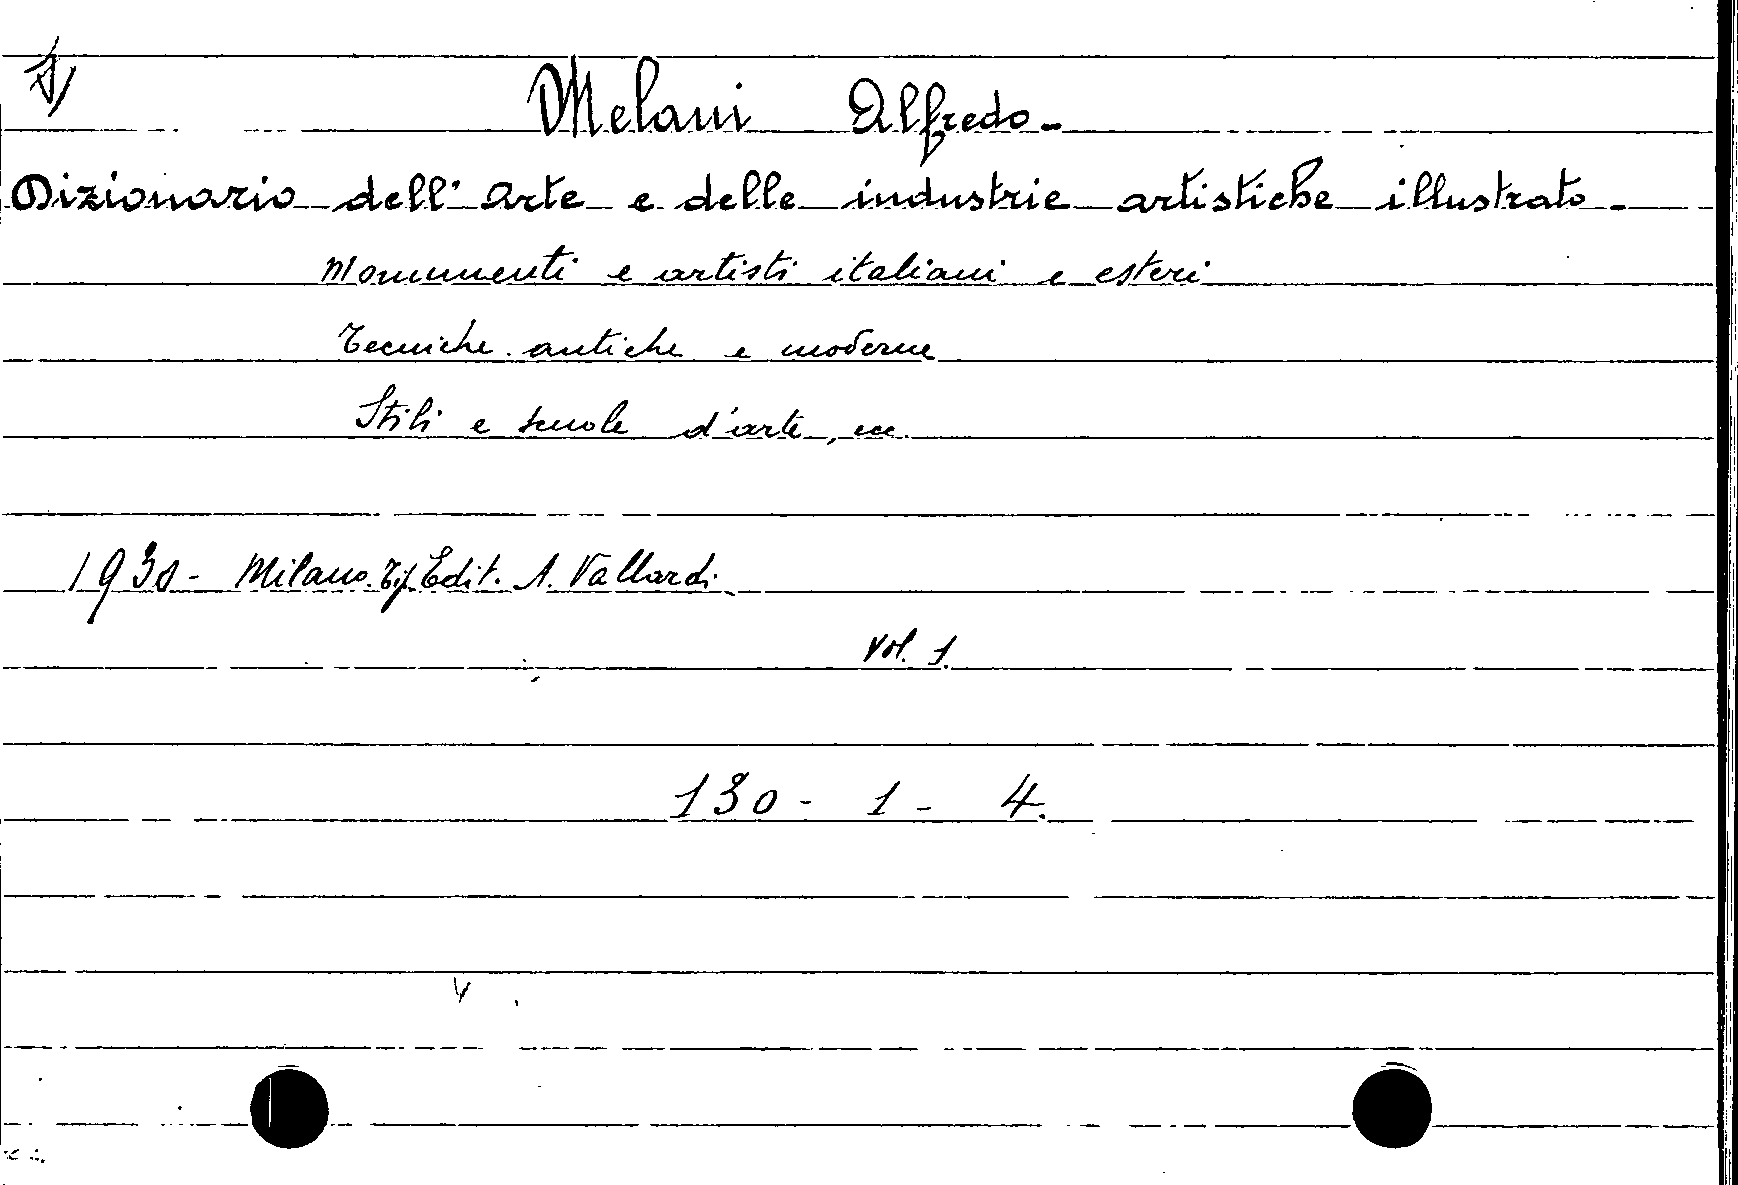 Melani Alfredo-
Dizionario dell'Arte e delle industrie artistiche illustrato-
Monumenti e artisti italiani e esteri
Tecniche antiche e moderne
Stili e scuole d'arte, ecc.
1930- Milano. Tip. Edit. A. Vallardi
Vol. 1
130- 1- 4.